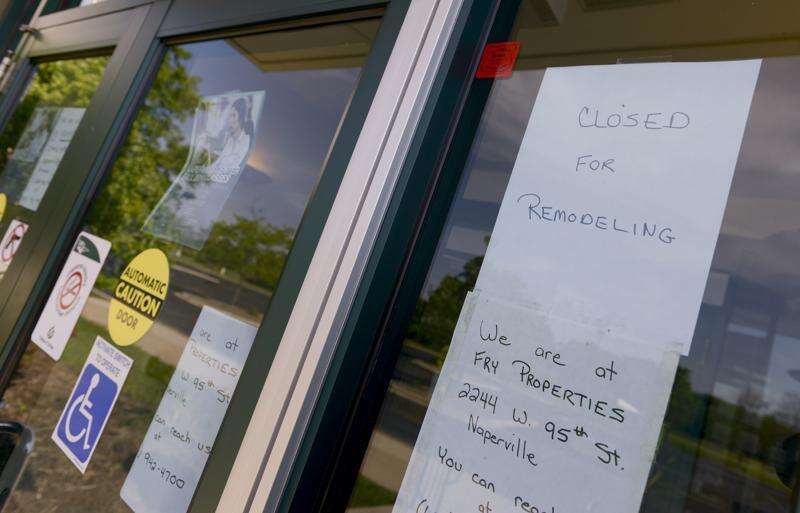 CLOSED
FOR
REMODELING
We are at
FRY PROPERTIES
2244 W. 95th St.
Naperville
You can reach
at
AUTOMATIC
CAUTION
DOOR
ACTIVATE SWITCH
TO OPERATE
are at
PROPERTIES
W. 95th St.
can reach us
at
942-4700